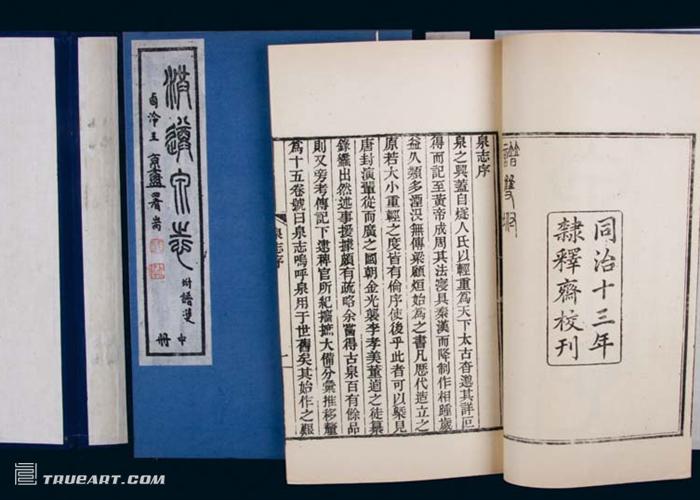 同治十三年
隸釋齋校刊
泉志序
泉之興蓋自燧人氏以輕重為天下太古杳邈其詳叵
得而記至黃帝成周其法寖具秦漢而降制作相踵歲
益久類多湮沒無傳梁顧烜始為之書凡歷代造立之
原若大小重輕之度皆有倫序使後乎此者可以槩見
唐封演輩從而廣之國朝金光襲李孝美董逌之徒纂
錄蠭出然述事援據頗有疏略余嘗得古泉百有餘品
則又旁考傳記下逮稗官所紀攟摭大備分彙推移釐
為十五卷號曰泉志嗚呼泉用于世舊矣其始作之艱
泉志序
一
洪遵泉志
附譜雙
中冊
TRUEART.COM